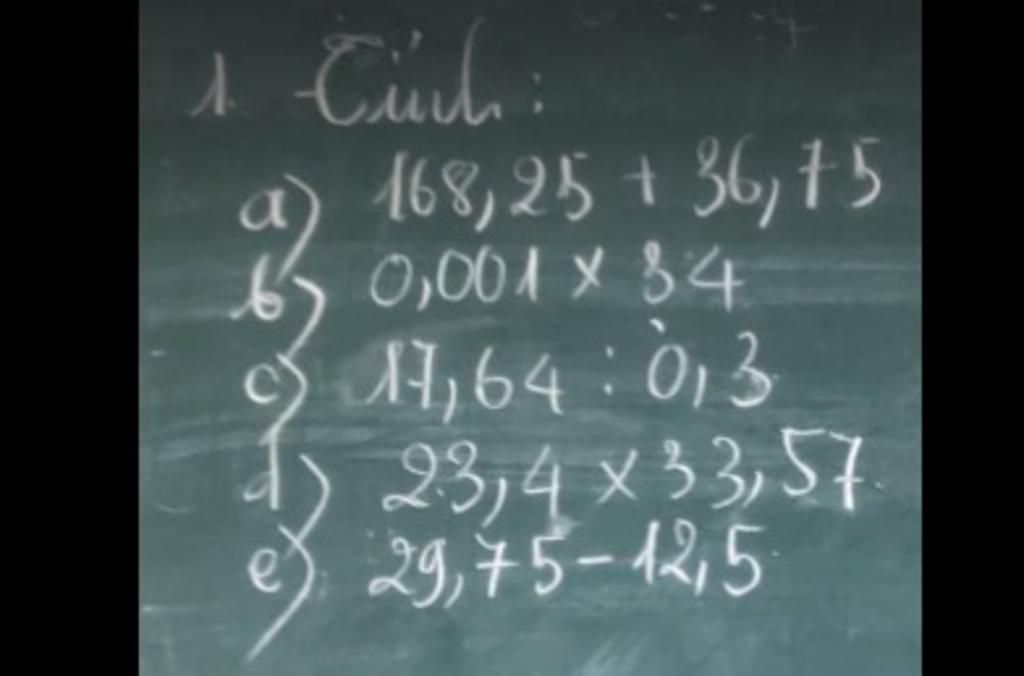 1. Tính:
a) 168,25 + 36,75
b) 0,001 × 34
c) 17,64 : 0,3
d) 23,4 × 33,57
e) 29,75 - 12,5